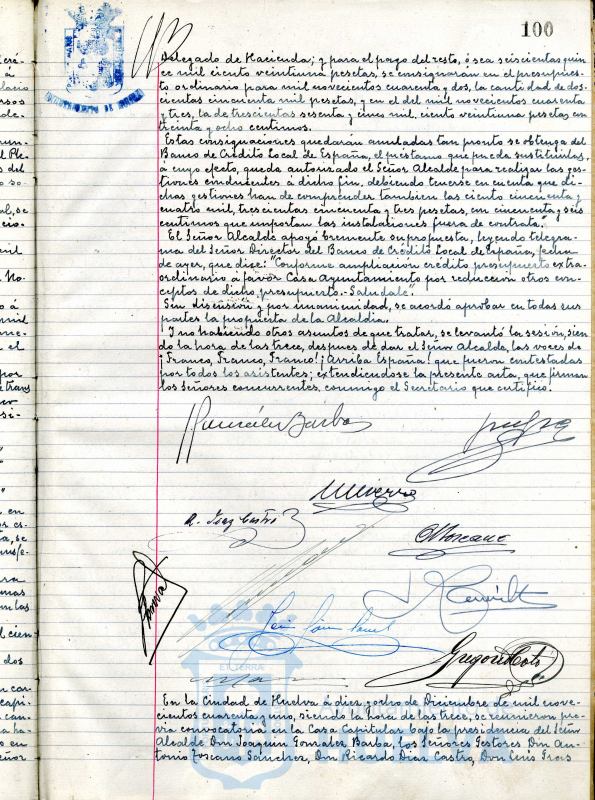 100
Delegado de Hacienda; y para el pago del resto, ó sea seiscientas quin
ce mil ciento veintiuna pesetas, se consignaran en el presupues-
to ordinario para mil novecientos cuarenta y dos, la cantidad de dos-
cientas cincuenta mil pesetas, y en el del mil novecientos cuarenta
y tres, la de trescientas sesenta y cinco mil, ciento veintiuna pesetas con
treinta y ocho centimos.
Estas consignaciones quedarán anuladas tan pronto se obtenga del
Banco de Crédito Local de España, el préstamo que pueda sustituirlas,
á cuyo efecto, queda autorizado el Señor Alcalde para realizar las ges-
tiones conducentes á dicho fin, debiendo tenerse en cuenta que di-
chas gestiones han de comprender tambien las ciento cincuenta y
cuatro mil, trescientas cincuenta y tres pesetas, con cincuenta y seis
centimos que importan las instalaciones fuera de contrata.
El Señor Alcalde apoyó brevemente su propuesta, leyendo telegra-
ma del Señor Director del Banco de Crédito Local de España, fecha
de ayer, que dice: "Conforme ampliación crédito presupuesto extra-
ordinario a favor Casa Ayuntamiento por reducción otros con-
ceptos de dicho presupuesto.- Saludale".
Sin discusión y por unanimidad, se acordó aprobar en todas sus
partes la propuesta de la Alcaldia.
Y no habiendo otros asuntos de que tratar, se levantó la sesión, sien
do la hora de las trece, despues de dar el Señor Alcalde, las voces de
¡Franco, Franco, Franco! ¡Arriba España! que fueron contestadas
por todos los asistentes; extendiendose la presente acta, que firman
los Señores concurrentes, conmigo el Secretario que certifico.
González Barba
A. Toscano
R. Diaz Castro
Gregorio
ET TERRÆ
En la Ciudad de Huelva á diez y ocho de Diciembre de mil nove-
cientos cuarenta y uno, siendo la hora de las trece, se reunieron pre-
via convocatoria en la Casa Capitular bajo la presidencia del Señor
Alcalde Don Joaquin Gonzalez Barba, los Señores Gestores Don An-
tonio Toscano Sánchez, Don Ricardo Diaz Castro, Don Luis